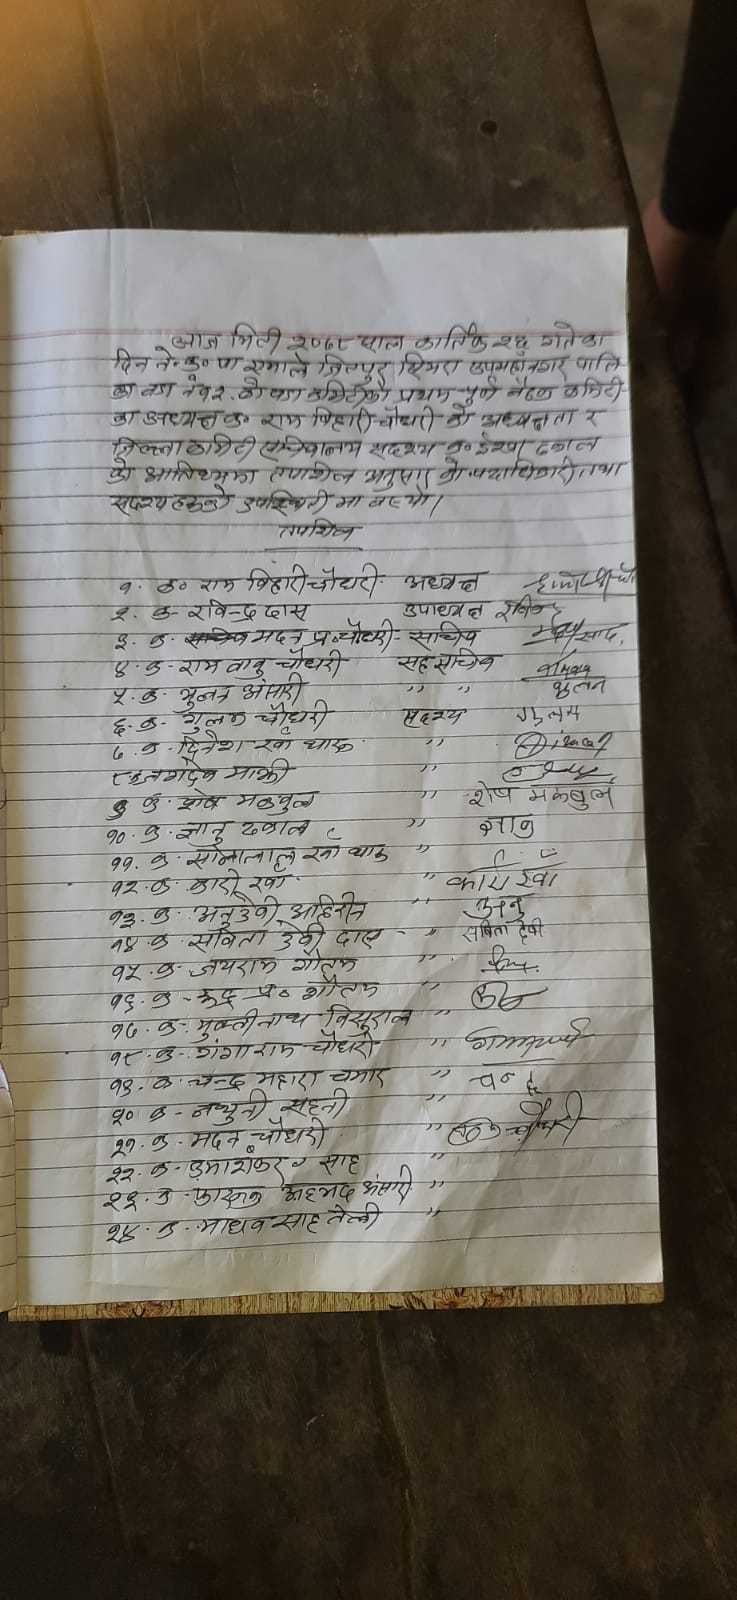 आज मिती २०७८ साल कार्तिक २६ गतेका
दिन ने.क.पा एमाले जितपुर सिमरा उपमहानगर पालि-
का वडा नंबर २ को वडा कमिटीको प्रथम पुर्ण बैठक कमिटी
का अध्यक्ष क. राम बिहारी चौधरी को अध्यक्षता र
जिल्ला कमिटी सचिवालय सदश्य क. ढकाल
को आतिथ्यमा तपशिल अनुसार को पदाधिकारी तथा
सदश्य हरुको उपस्थिती मा बस्यो।
तपशिल
१. क. राम बिहारी चौधरी अध्यक्ष
२. क. रविन्द्र दास उपाध्यक्ष रविन्द्र
३. क. मदन प्र. चौधरी - सचिव
४. क. राम बाबु चौधरी सह सचिव
५. क. अंसारी " "
६. क. गुलम चौधरी सदश्य गुलम
७. क. दिनेश खाँ थारु "
८. क. जगदेव माझी "
९ क. शेष मकबुल " शेष मकबुल
१०. क. ज्ञानु ढकाल " ज्ञानु
११. क. सोनालाल खाँ थारु "
१२. क. कारी खाँ " कारी खाँ
१३. क. अहिरीन "
१४. क. सबिता देवी दास - " सबिता देवी
१५. क. जयराम गौतम "
१६. क. रुद्र प्र. गौतम "
१७. क. मुक्तीनाथ विसुराल "
१८. क. गंगाराम चौधरी "
१९. क. चन्द्र महारा चमार " चन्द्र
२० क. नथुनी सहनी "
२१. क. मदन चौधरी " चौधरी
२२. क. उमाशंकर साह "
२३. क. अहमद अंसारी "
२४. क. माधव साह तेली "